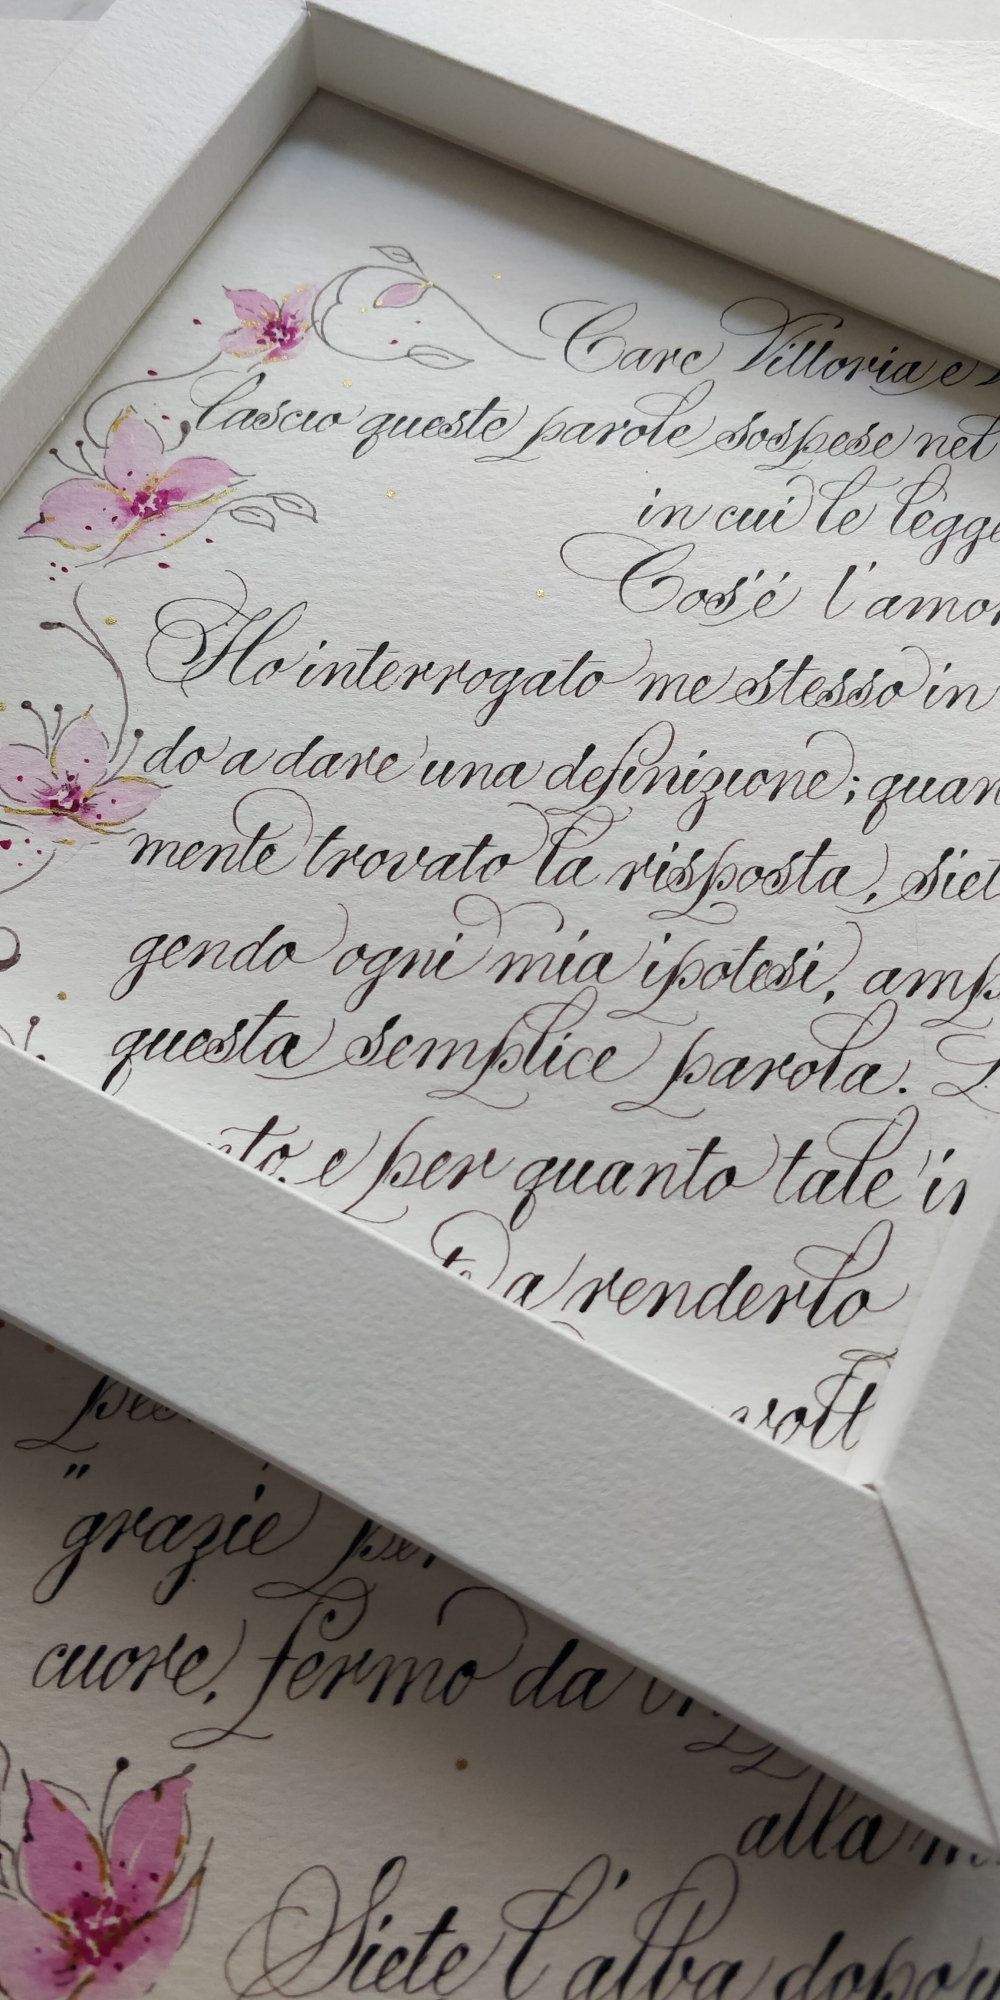 Care Vittoria e
lascio queste parole sospese nel
in cui le legge
Cos'é l'amor
Ho interrogato me stesso in
do a dare una definizione; quan
mente trovato la risposta, siet
gendo ogni mia ipotesi, amp
questa semplice parola.
nto, e per quanto tale in
a renderlo
volt
"grazie per
cuore, fermo da
alla
Siete l'alba dopo